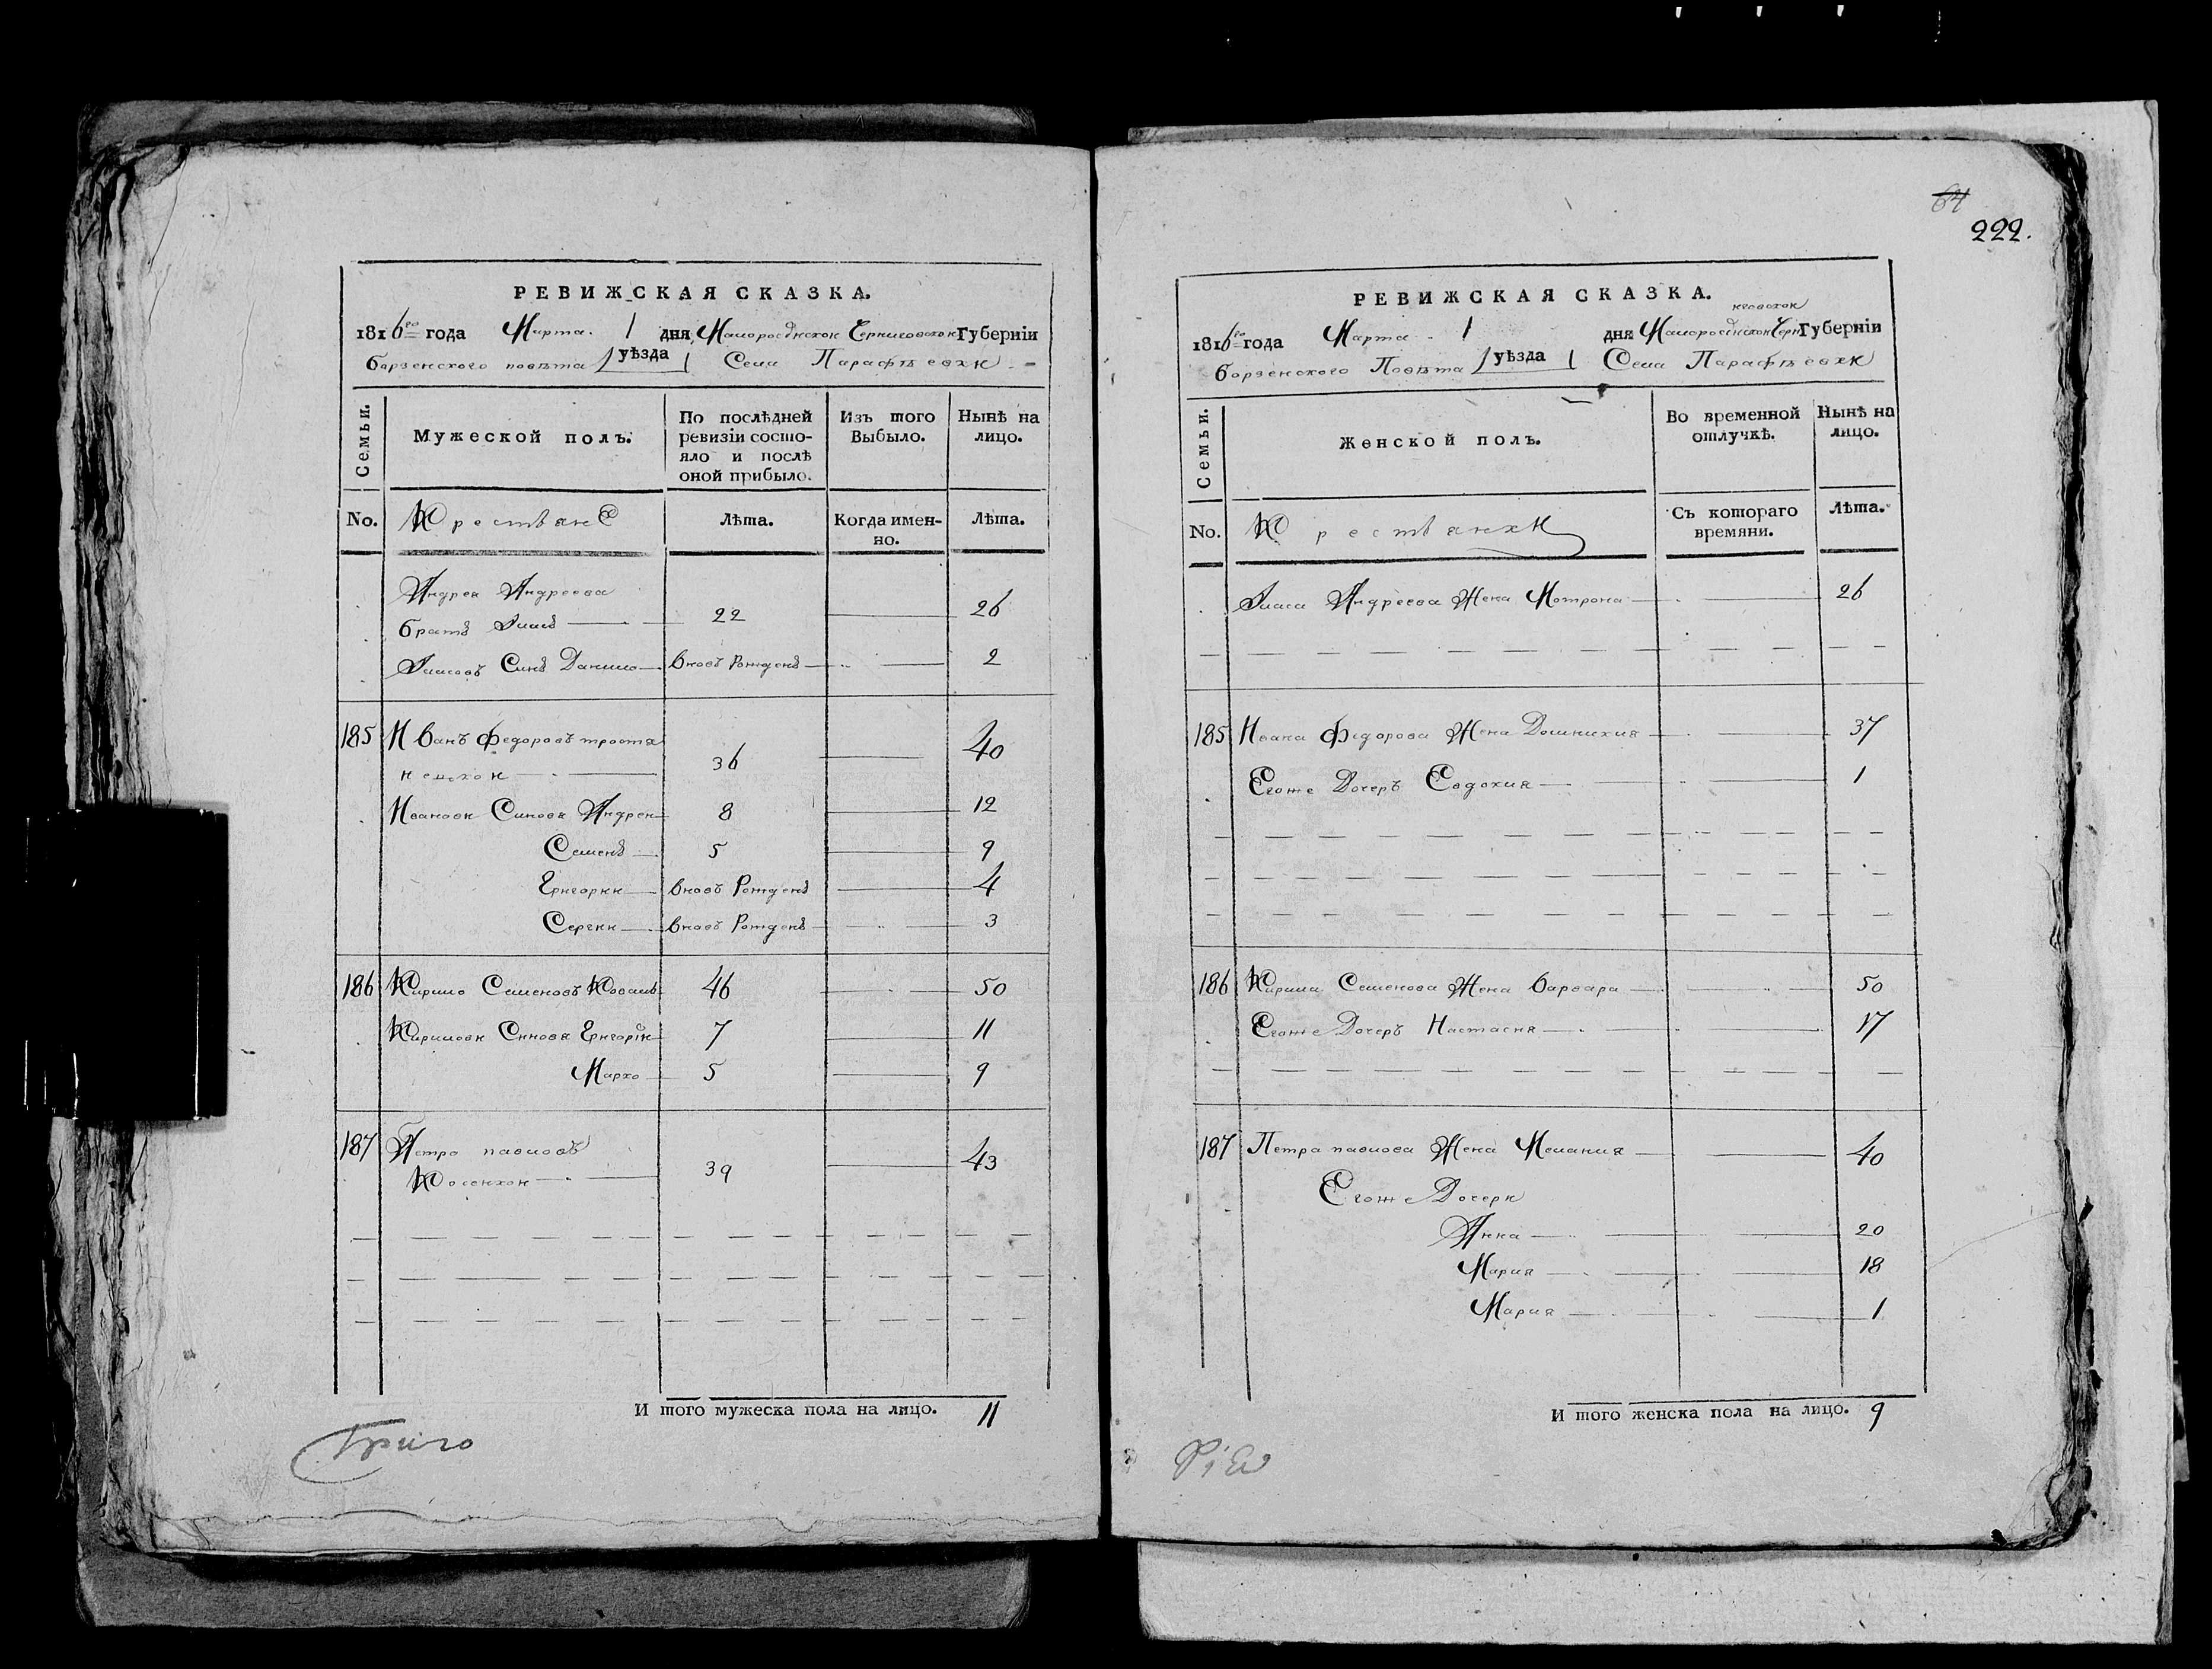 РЕВИЖСКАЯ СКАЗКА.
1816го года Марта 1 дня, Малоросійской Черниговской Губерніи
борзенского повѣта уѣзда Села Парафѣевки
Семьи.
Мужеской полъ.
По послѣдней ревизіи состо-
яло и послѣ
оной прибыло.
Изъ того
Выбыло.
Нынѣ на
лицо.
No.
Крестьяне
Лѣта.
Когда имен-
но.
Лѣта.
Андрея Андреева
братъ Власъ 22 26
Власовъ Синъ Данило вновъ Рожденъ 2
185 Иванъ Федоровъ
36 40
Ивановы Синовя Андрей 8 12
Семенъ 5 9
Григорий вновъ Рожденъ 4
Сергий вновъ Рожденъ 3
186 Кирило Семеновъ Коваль 46 50
Кириловы Синовя Григорій 7 11
Марко 5 9
187 Петро павловъ
39 43
И того мужеска пола на лицо. 11
64
222.
РЕВИЖСКАЯ СКАЗКА.
1816го года Марта 1 дня Малоросійской Черниговской Губерніи
борзенского Повѣта уѣзда Села Парафѣевки
Семьи.
Женской полъ.
Во временной
отлучкѣ.
Нынѣ на
лицо.
No.
Крестьянки
Съ котораго
времяни.
Лѣта.
Власа Андреева Жена Мотрона 26
185 Ивана Федорова Жена Домникия 37
Егоже Дочеръ Евдокия 1
186 Кирила Семенова Жена варвара 50
Егоже Дочеръ Настасия 17
187 Петра павлова Жена Мелания 40
Егоже Дочери
Анна 20
Мария 18
Мария 1
И того женска пола на лицо. 9